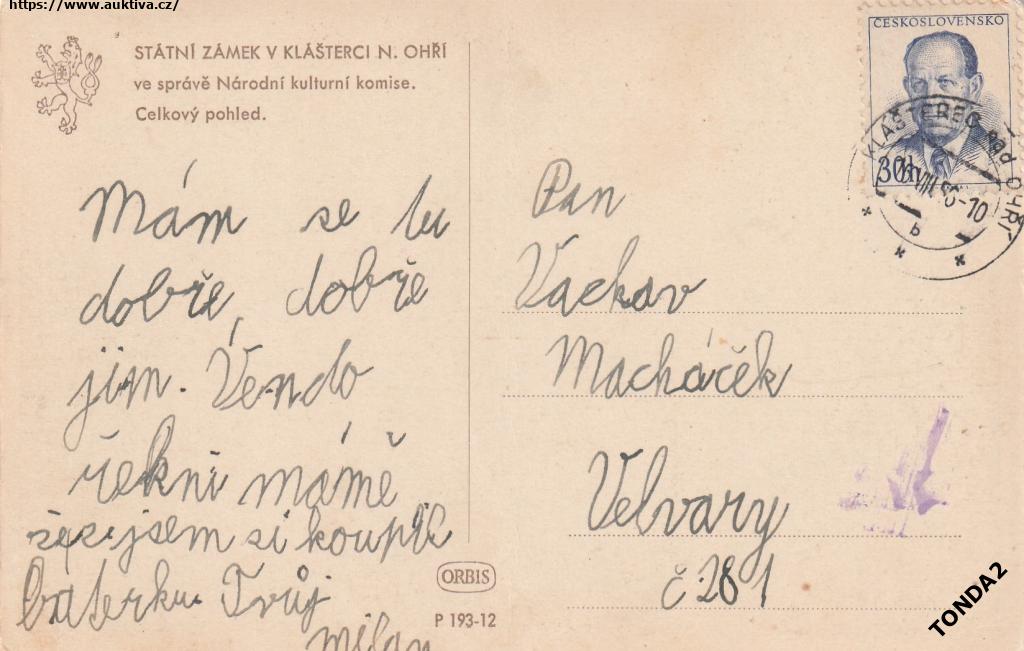 https://www.auktiva.cz/
STÁTNÍ ZÁMEK V KLÁŠTERCI N. OHŘÍ
ve správě Národní kulturní komise.
Celkový pohled.
Mám se tu
dobře, dobře
jim. Véndo
řekni mámě
že jsem si koupil
baterku. Tvůj
Milan
ORBIS
P 193-12
ČESKOSLOVENSKO
30h
KLÁŠTEREC nad OHŘÍ
VIII 56-10
b
Pan
Vackav
Macháček
Velvary
č 281
TONDA2